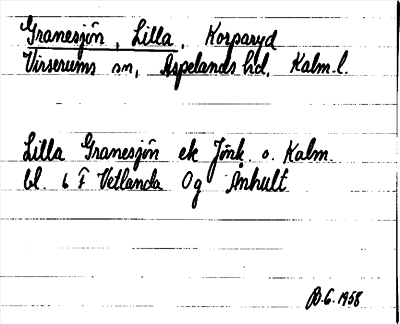 Granesjön, Lilla, Korparyd
Virserums sn, Aspelands hd, Kalm. l.
Lilla Granesjön ek Jönk. o. Kalm.
bl. 6 F Vetlanda Og Anhult
B.G. 1958